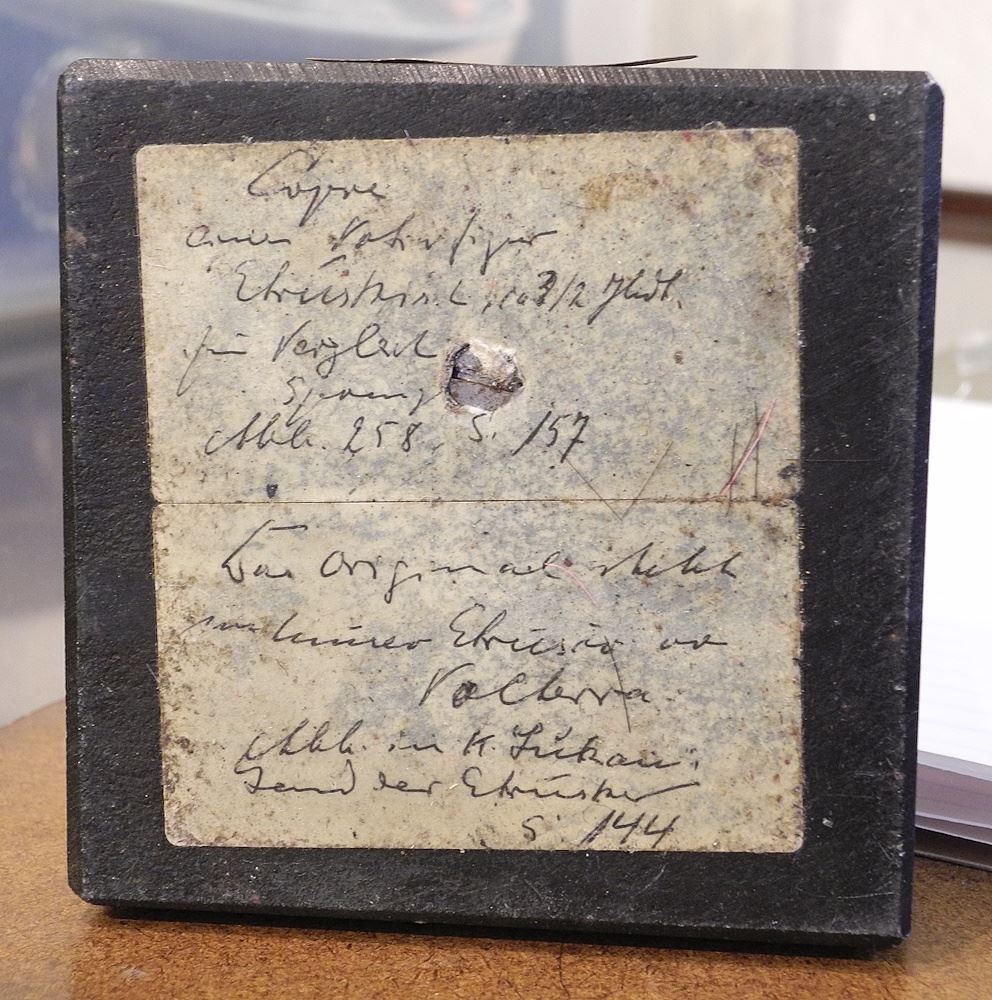 Copie
einer Votivfigur
Etruskisch, ca 3/2 Jhdt.
für Vergleich
Abb. 258 S. 157
Das Original steht
im Museo Etrusco
Volterra
Abb. in K.
Land der Etrusker
S. 144